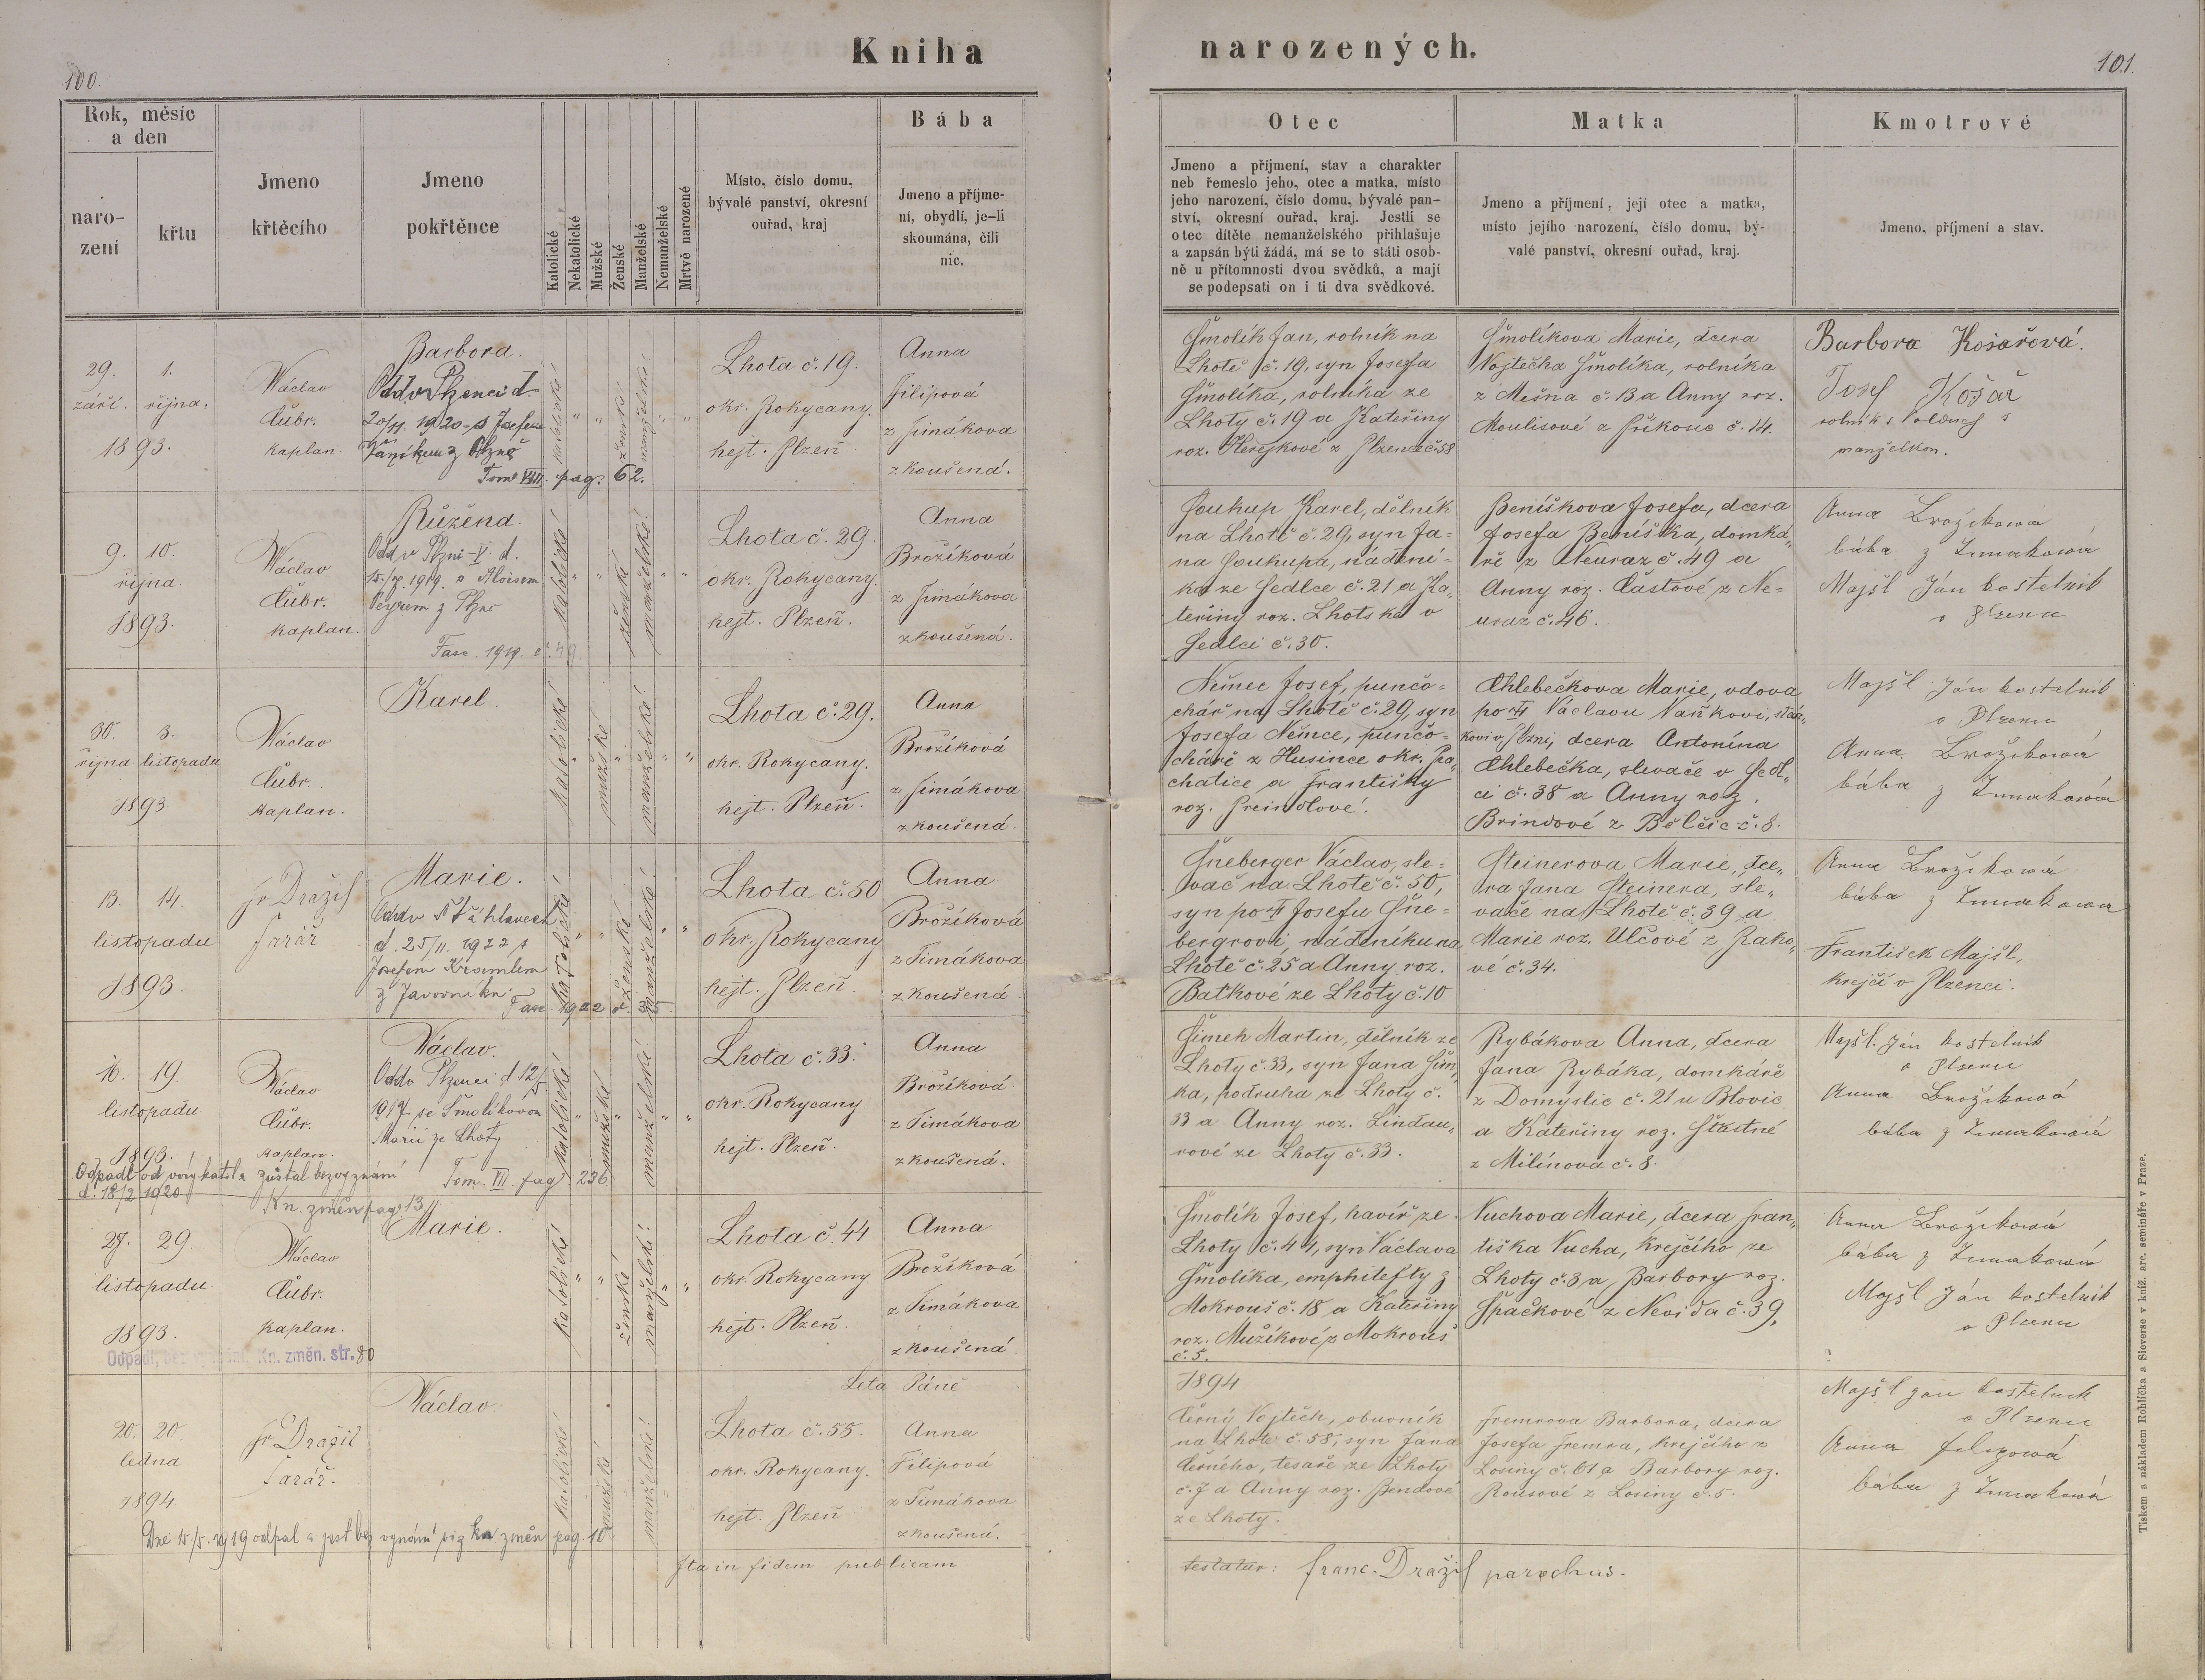 Kniha
narozených.
100.
101.
Rok, měsíc
a den
naro-
zení
křtu
Jmeno
křtěcího
Jmeno
pokřtěnce
Katolické
Nekatolické
Mužské
Ženské
Manželské
Nemanželské
Mrtvě narozené
Místo, číslo domu,
bývalé panství, okresní
ouřad, kraj
Bába
Jmeno a příjme-
ní, obydlí, je-li
skoumána, čili
nic.
Otec
Jmeno a příjmení, stav a charakter
neb řemeslo jeho, otec a matka, místo
jeho narození, číslo domu, bývalé pan-
ství, okresní ouřad, kraj. Jestli se
otec dítěte nemanželského přihlašuje
a zapsán býti žádá, má se to státi osob-
ně u přítomnosti dvou svědků, a mají
se podepsati on i ti dva svědkové.
Matka
Jmeno a příjmení, její otec a matka,
místo jejího narození, číslo domu, bý-
valé panství, okresní ouřad, kraj.
Kmotrové
Jmeno, příjmení a stav.
29. 1.
září. října.
1893.
Václav
Čubr.
kaplan
Barbora.
Odd. v Plzenci d.
20/11. 1920 s Josefem
z Plzně
Tom. VIII. pag. 62.
katolické
ženské
manželské
Lhota č. 19.
okr. Rokycany.
hejt. Plzeň
Anna
Filipová
z Timákova
zkoušená.
Šmolík Jan, rolník na
Lhotě č. 19, syn Josefa
Šmolíka, rolníka ze
Lhoty č. 19 a Kateřiny
roz. Herejkové z Plzence č. 58
Šmolíkova Marie, dcera
Vojtěcha Šmolíka, rolníka
z Mešna č. 13 a Anny roz.
Moulisové z Příkosic č. 14.
Barbora Košařová.
Josef Košař
rolník s
manželkou.
9. 10.
října
1893.
Václav
Čubr.
kaplan.
Růžena.
Odd. v Plzni-V d.
1919. s Aloisem
z Plzně
Fasc. 1919. č. 49
katolické
ženské
manželské
Lhota č. 29.
okr. Rokycany.
hejt. Plzeň.
Anna
Brožíková
z Timákova
zkoušená.
Soukup Karel, dělník
na Lhotě č. 29, syn Ja=
na Soukupa, nádení=
ka ze Sedlce č. 21 a Ka„
teřiny roz. Lhotska v
Sedlci č. 30.
Beníškova Josefa, dcera
Josefa Beníška, domká„
ře z Neuraz č. 49 a
Anny roz. Částové z Ne=
uraz č. 46.
Anna Brožikowa
bába z Timakowá
Majšl Ján kostelnik
v Plzenci
30. 3.
října listopadu
1893
Václav
Čubr.
kaplan.
Karel.
katolické
mužské
manželské
Lhota č. 29.
okr. Rokycany.
hejt. Plzeň.
Anna
Brožíková
z Timákova
zkoušená.
Němec Josef, punčo=
chář na Lhotě č. 29, syn
Josefa Němce, punčo=
cháře z Husince okr. Pra„
chatice a Františky
roz. Preindlové.
Chlebečkova Marie, vdova
po Václavu Vaňkovi,
kovi v Plzni, dcera Antonína
Chlebečka, slevače v Sedl„
ci č. 38 a Anny roz.
Brindové z Bělčic č. 8.
Majšl Ján kostelnik
v Plzenci
Anna Brožikowá
bába z Timakowá
13. 14.
listopadu
1893
Fr. Dražil
farář
Marie.
Odd. v Šťáhlavech
d. 25/11. 1922 s
Josefem Kreamlem
z Javorníku
Fasc. 1922 č. 35.
katolické
ženské
manželské
Lhota č. 50
okr. Rokycany
hejt. Plzeň
Anna
Brožíková
z Timákova
zkoušená
Šneberger Václav, sle=
vač na Lhotě č. 50,
syn po Josefu Šne=
bergrovi, nádeníku na
Lhotě č. 25 a Anny roz.
Baťkové ze Lhoty č. 10
Steinerova Marie, dce„
ra Jana Steinera, sle„
vače na Lhotě č. 39 a
Marie roz. Ulčové z Rako„
vé č. 34.
Anna Brožikowá
bába z Timakowa
František Majšl,
krejčí v Plzenci.
16. 19.
listopadu
1893.
Václav
Čubr.
kaplan.
Václav.
Odd. v Plzenci d. 12/5
1917 se Šmolíkovou
Marií ze Lhoty
Tom. VII. pag. 236
Odpadl od víry katol. a zůstal bez vyznání
d. 18/2 1920
Kn. změn pag. 13
katolické
mužské
manželské
Lhota č. 33.
okr. Rokycany.
hejt. Plzeň.
Anna
Brožíková
z Timákova
zkoušená.
Šimek Martin, dělník ze
Lhoty č. 33, syn Jana Šim„
ka, podruha ze Lhoty č.
33 a Anny roz. Lindau„
rové ze Lhoty č. 33.
Rybákova Anna, dcera
Jana Rybáka, domkáře
z Domyslic č. 21 u Blovic
a Kateřiny roz. Šťastné
z Milínova č. 8.
Majšl. Ján kostelnik
v Plzenci
Anna Brožikowá
bába z Timakowá
27. 29.
listopadu
1893.
Václav
Čubr.
kaplan.
Marie.
Odpadl, bez vyznání. Kn. změn. str. 80
katolické
ženské
manželské
Lhota č. 44
okr. Rokycany
hejt. Plzeň.
Anna
Brožíková
z Timákova
zkoušená
Šmolík Josef, havíř ze
Lhoty č. 44, syn Václava
Šmolíka, emphitefty z
Mokrouš č. 18 a Kateřiny
roz. Mužíkové z Mokrouš
č. 5.
Vuchova Marie, dcera Fran„
tiška Vucha, krejčího ze
Lhoty č. 3 a Barbory roz.
Špačkové z Nevida č. 39,
Anna Brožikowá
bába z Timakowá
Majšl Ján kostelnik
v Plzenci
Leta Páně
1894
20. 20.
ledna
1894
Fr. Dražil
farář.
Václav.
Dne 15/5. 1919 odpal a jest bez vyznání viz kn změn pag. 10
katolické
mužské
manželské
Lhota č. 55.
okr. Rokycany.
hejt. Plzeň
Anna
Filipová
z Timákova
zkoušená.
Černý Vojtěch, obuvník
na Lhotě č. 58, syn Jana
Černého, tesaře ze Lhoty
č. 7 a Anny roz. Bendové
ze Lhoty.
Fremrova Barbora, dcera
Josefa Fremra, krejčího z
Losiny č. 61 a Barbory roz.
Rousové z Losiny č. 5.
Majšl Jan kostelnik
v Plzenci
Anna Filipowá
bába z Timakowá
Ita in fidem publicam
testatur: Franc. Dražil parochus.
Tiskem a nákladem Rohlíčka a Sieverse v kníž. arc. semináře v Praze.